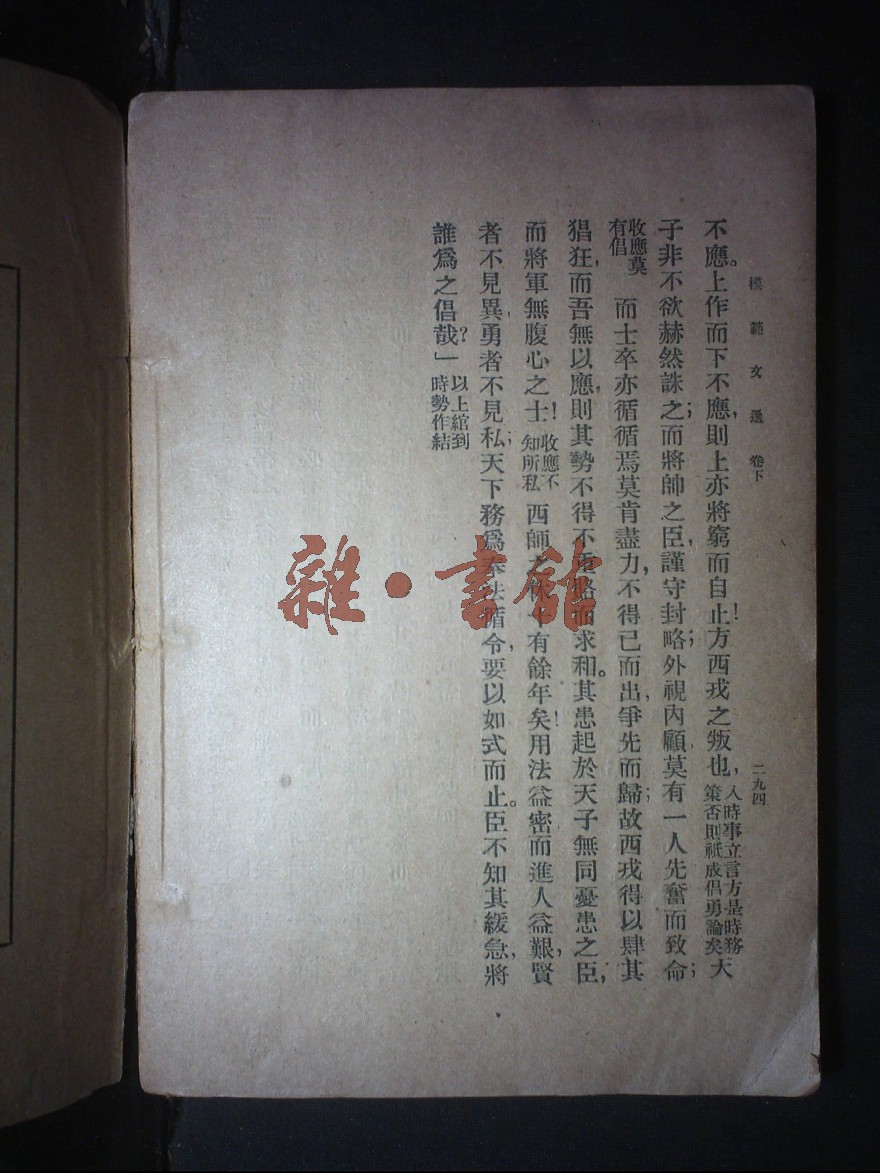 模範文選 卷下 二九四
不應。上作而下不應，則上亦將窮而自止！方西戎之叛也，入時事立言方是時務策否則祇成倡勇論矣天
子非不欲赫然誅之；而將帥之臣，謹守封略；外視內顧，莫有一人先奮而致命；
收應莫有倡 而士卒亦循循焉莫肯盡力，不得已而出，爭先而歸；故西戎得以肆其
猖狂，而吾無以應，則其勢不得不重賂而求和。其患起於天子無同憂患之臣，
而將軍無腹心之士！收應不知所私 西師之休十有餘年矣！用法益密而進人益艱，賢
者不見異，勇者不見私；天下務爲奉法循令，要以如式而止。臣不知其緩急，將
誰爲之倡哉？」以上綰到時勢作結
雜·書館